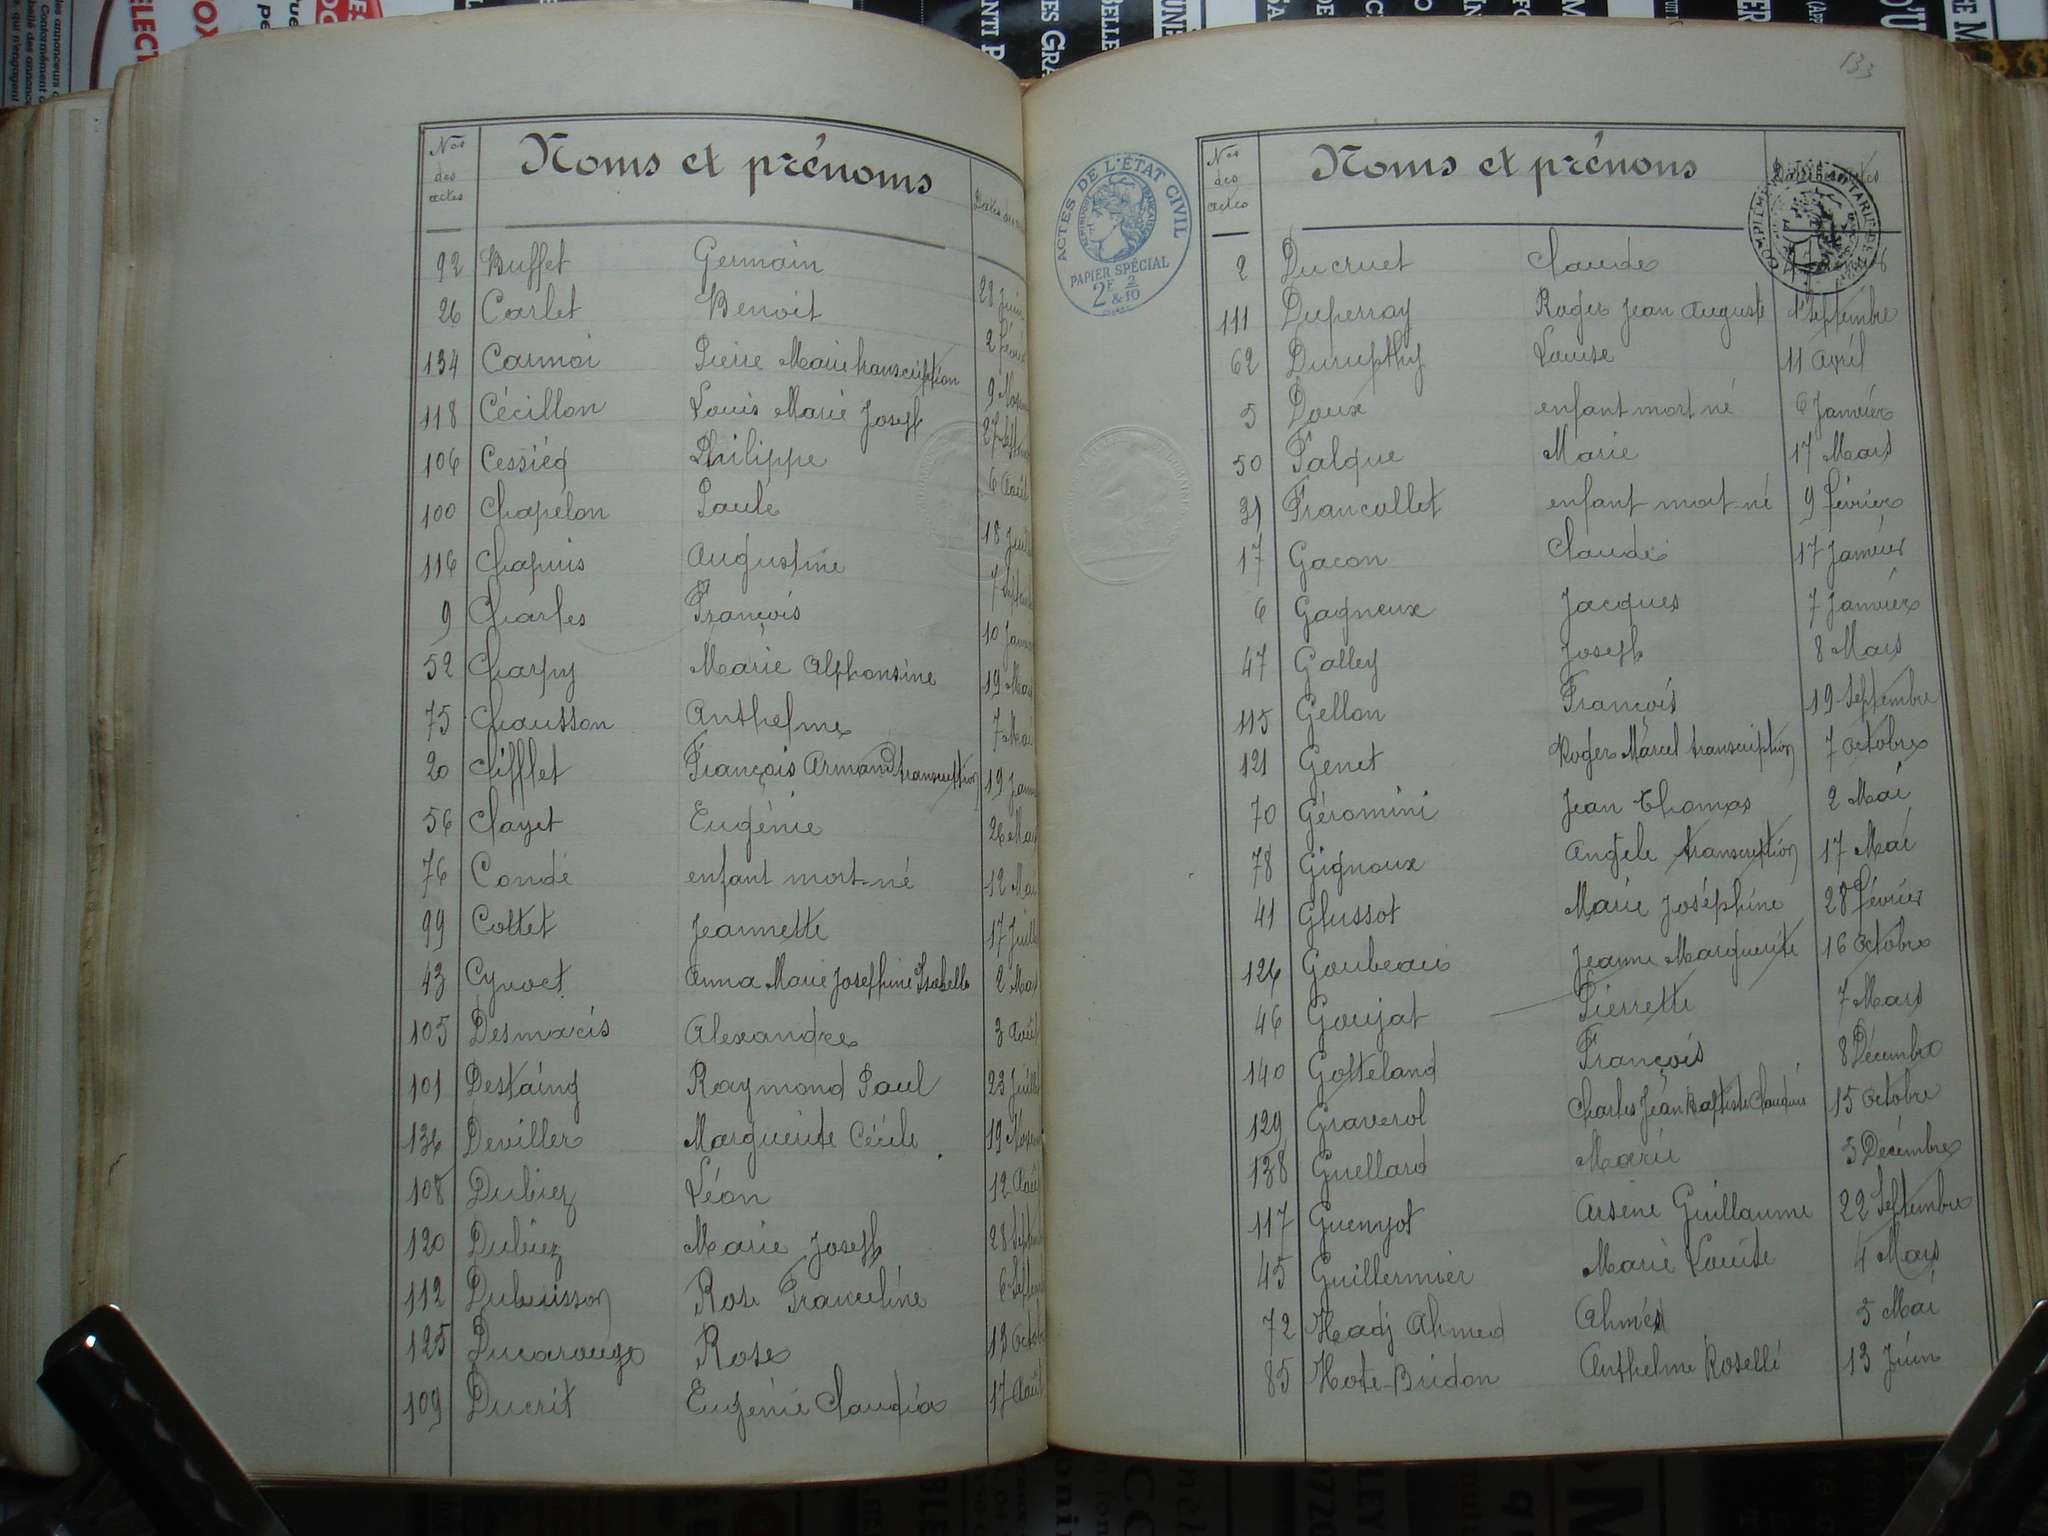 133
Nos des actes
Noms et prénoms
92 Buffet Germain 28 Juin
26 Carlet Benoit 2
134 Carmoi Pierre Marie transcription 9
118 Cécillon Louis Marie Joseph 27
106 Cessieg Philippe 6 Août
100 Chapelon Paule 18
116 Chapuis Augustine 7
9 Charles François 10
52 Charpy Marie Alphonsine 19
75 Chausson Anthelme 7 Mai
20 Chifflet François Armand transcription 19
56 Clayet Eugénie 26
76 Condé enfant mort-né 12 Mai
99 Cottet Jeannette 17
43 Cynoct Anna Marie Josephine Isabelle 2
105 Desmaris Alexandre 3 Août
101 Destaing Raymond Paul 23
136 Deviller Marguerite Cécile 19
108 Dubiez Léon 12 Août
120 Dubiez Marie Joseph 28
112 Dubuisson Rose Franceline 6
125 Ducarouge Rose 13
109 Ducrit Eugénie Claudia 17 Août
ACTES DE L'ÉTAT CIVIL
PAPIER SPÉCIAL
2F 2 &10
Nos des actes
Noms et prénons
2 Ducruet Claude
111 Duperray Roger Jean Auguste 1 Septembre
62 Durupthy Louise 11 avril
5 Doux enfant mort né 6 Janvier
50 Falque Marie 17 Mars
31 Francollet enfant mort-né 9 février
17 Gacon Claude 17 Janvier
6 Gagneux Jacques 7 Janvier
47 Galley Joseph 8 Mars
115 Gellon François 19 Septembre
121 Genet Roger Marcel transcription 7 Octobre
70 Géromini Jean Thomas 2 Mai
78 Gignoux Angèle transcription 17 Mai
41 Glussot Marie Joséphine 28 février
126 Goubeaux Jeanne Marguerite 16 Octobre
46 Goujat Pierrette 7 Mars
140 Gotteland François 8 Décembre
129 Graverol Charles Jean Baptiste Claudius 15 Octobre
138 Guellard Marie 5 Décembre
117 Guenyot Arsène Guillaume 22 Septembre
45 Guillermier Marie Louise 4 Mars
72 Hadj Ahmed Ahmed 5 Mai
85 Hote-Bridon Anthelme Rosellé 13 Juin